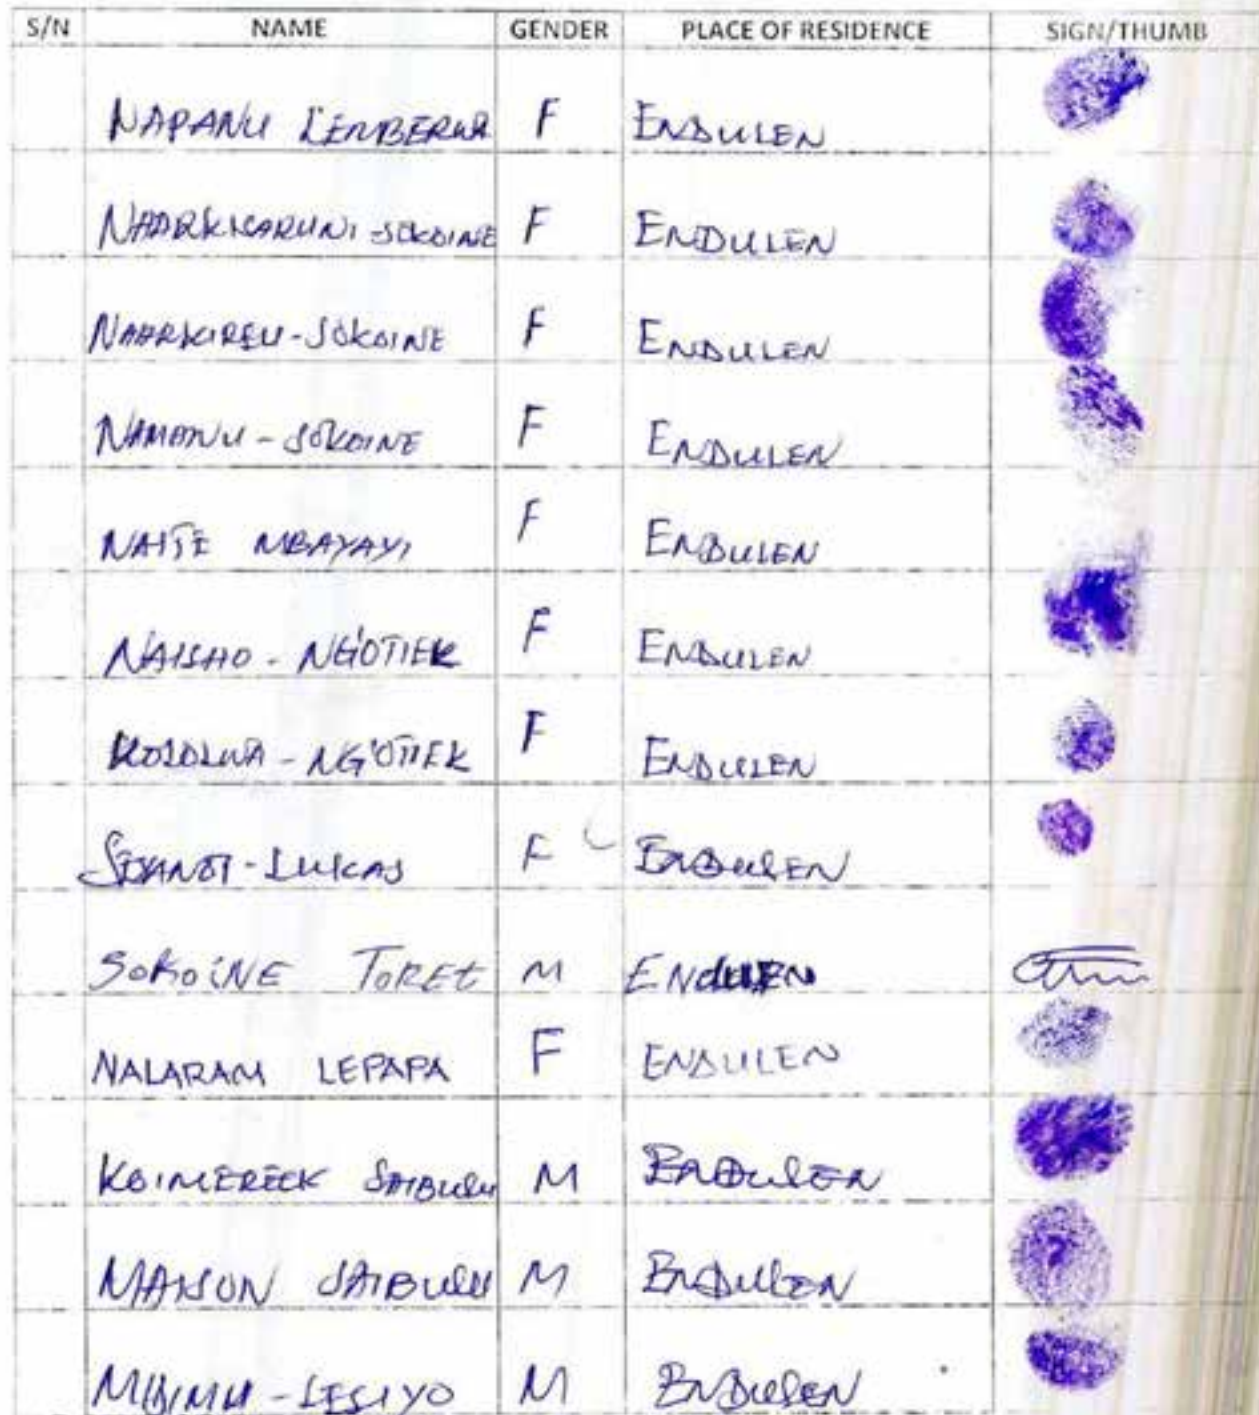 S/N NAME GENDER PLACE OF RESIDENCE SIGN/THUMB
NAPANU F ENDULEN
SOKOINE F ENDULEN
SOKOINE F ENDULEN
SOKOINE F ENDULEN
NAITE MBAYAYI F ENDULEN
NAISHO - NG'OTIEK F ENDULEN
NG'OTIEK F ENDULEN
LUKAS F ENDULEN
SOKOINE TORET M ENDULEN
NALARAM LEPAPA F ENDULEN
KOIMERECK SAIBULU M ENDULEN
MAISON SAIBULU M ENDULEN
LESIYO M ENDULEN